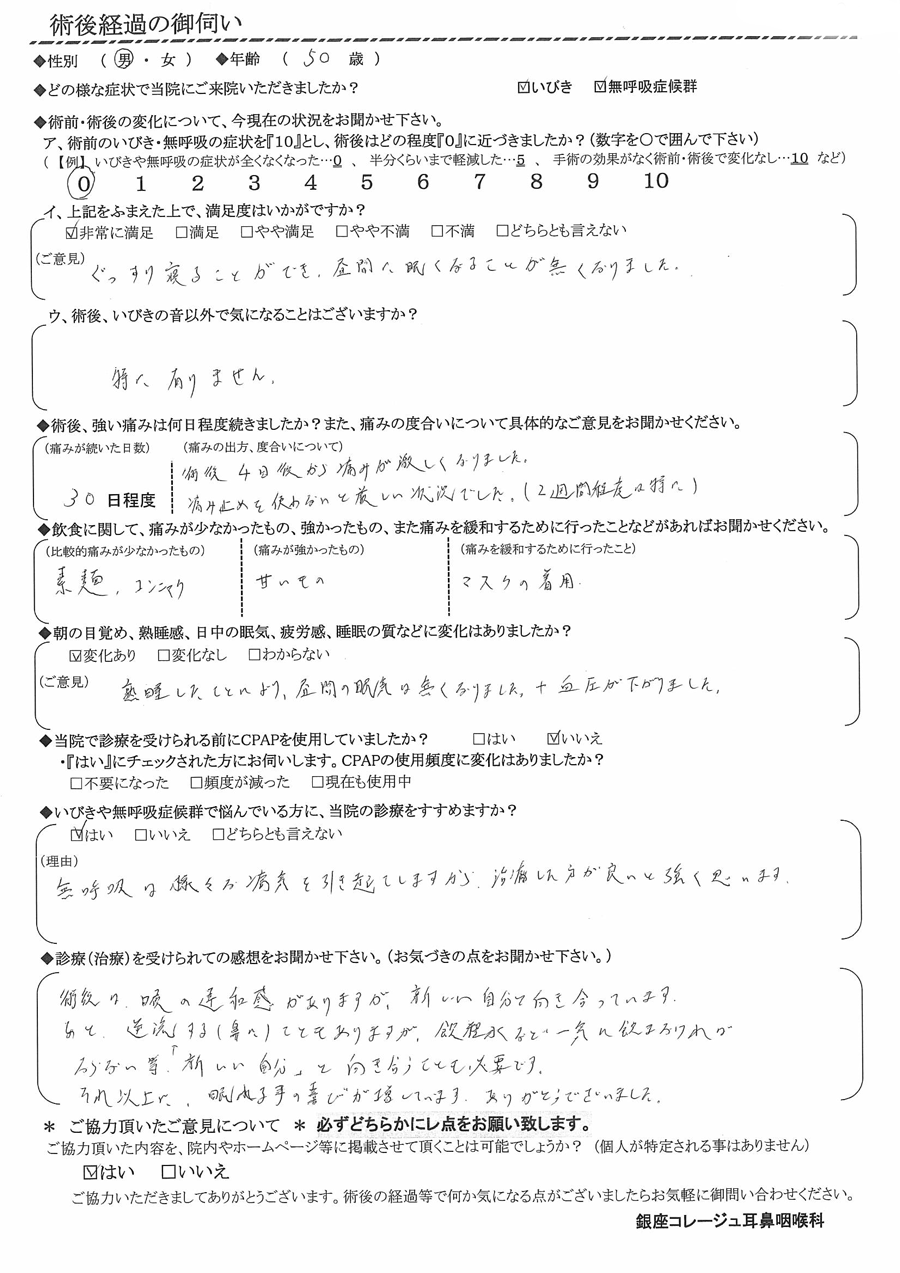 術後経過の御伺い
◆性別 ( 男 ・ 女 ) ◆年齢 ( 50 歳 )
◆どの様な症状で当院にご来院いただきましたか? ☑いびき ☑無呼吸症候群
◆術前・術後の変化について、今現在の状況をお聞かせ下さい。
ア、術前のいびき・無呼吸の症状を『10』とし、術後はどの程度『0』に近づきましたか?(数字を〇で囲んで下さい)
(【例】いびきや無呼吸の症状が全くなくなった…0 、 半分くらいまで軽減した…5 、 手術の効果がなく術前・術後で変化なし…10 など)
0 1 2 3 4 5 6 7 8 9 10
イ、上記をふまえた上で、満足度はいかがですか?
☑非常に満足 □満足 □やや満足 □やや不満 □不満 □どちらとも言えない
(ご意見)
ぐっすり寝ることができ、昼間に眠くなることが無くなりました。
ウ、術後、いびきの音以外で気になることはございますか?
特に有りません。
◆術後、強い痛みは何日程度続きましたか?また、痛みの度合いについて具体的なご意見をお聞かせください。
(痛みが続いた日数) (痛みの出方、度合いについて)
術後4日後から痛みが激しくなりました。
30 日程度
痛み止めを使わないと厳しい状況でした。(2週間程度は特に)
◆飲食に関して、痛みが少なかったもの、強かったもの、また痛みを緩和するために行ったことなどがあればお聞かせください。
(比較的痛みが少なかったもの) (痛みが強かったもの) (痛みを緩和するために行ったこと)
素麺、コンニャク 甘いもの マスクの着用
◆朝の目覚め、熟睡感、日中の眠気、疲労感、睡眠の質などに変化はありましたか?
☑変化あり □変化なし □わからない
(ご意見)
熟睡したことにより、昼間の眠気は無くなりました。+血圧が下がりました。
◆当院で診療を受けられる前にCPAPを使用していましたか? □はい ☑いいえ
・『はい』にチェックされた方にお伺いします。CPAPの使用頻度に変化はありましたか?
□不要になった □頻度が減った □現在も使用中
◆いびきや無呼吸症候群で悩んでいる方に、当院の診療をすすめますか?
☑はい □いいえ □どちらとも言えない
(理由)
無呼吸は様々な病気を引き起こしますから、治療した方が良いと強く思います。
◆診療(治療)を受けられての感想をお聞かせ下さい。(お気づきの点をお聞かせ下さい。)
術後は、喉の違和感がありますが、新しい自分と向き合っています。
あと、逆流する(鼻に)こともありますが、飲料水などで一気に飲まなければ
ならない等↑「新しい自分」と向き合うことも必要です。
それ以上に、眠れる事の喜びが増しています。ありがとうございました。
＊ ご協力頂いたご意見について ＊ 必ずどちらかにレ点をお願い致します。
ご協力頂いた内容を、院内やホームページ等に掲載させて頂くことは可能でしょうか? (個人が特定される事はありません)
☑はい □いいえ
ご協力いただきましてありがとうございます。術後の経過等で何か気になる点がございましたらお気軽に御問い合わせください。
銀座コレージュ耳鼻咽喉科